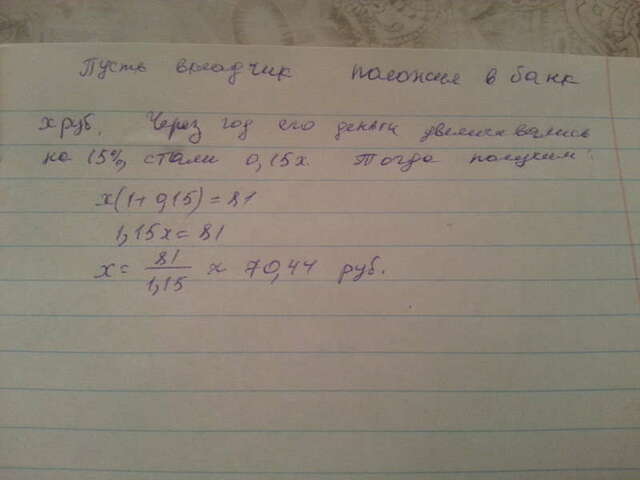 Пусть вкладчик положил в банк
х руб. Через год его деньги увеличивались
на 15%, стали 0,15х Тогда получили:
х(1+0,15) = 81
1,15х = 81
х = 81/1,15 ≈ 70,44 руб.